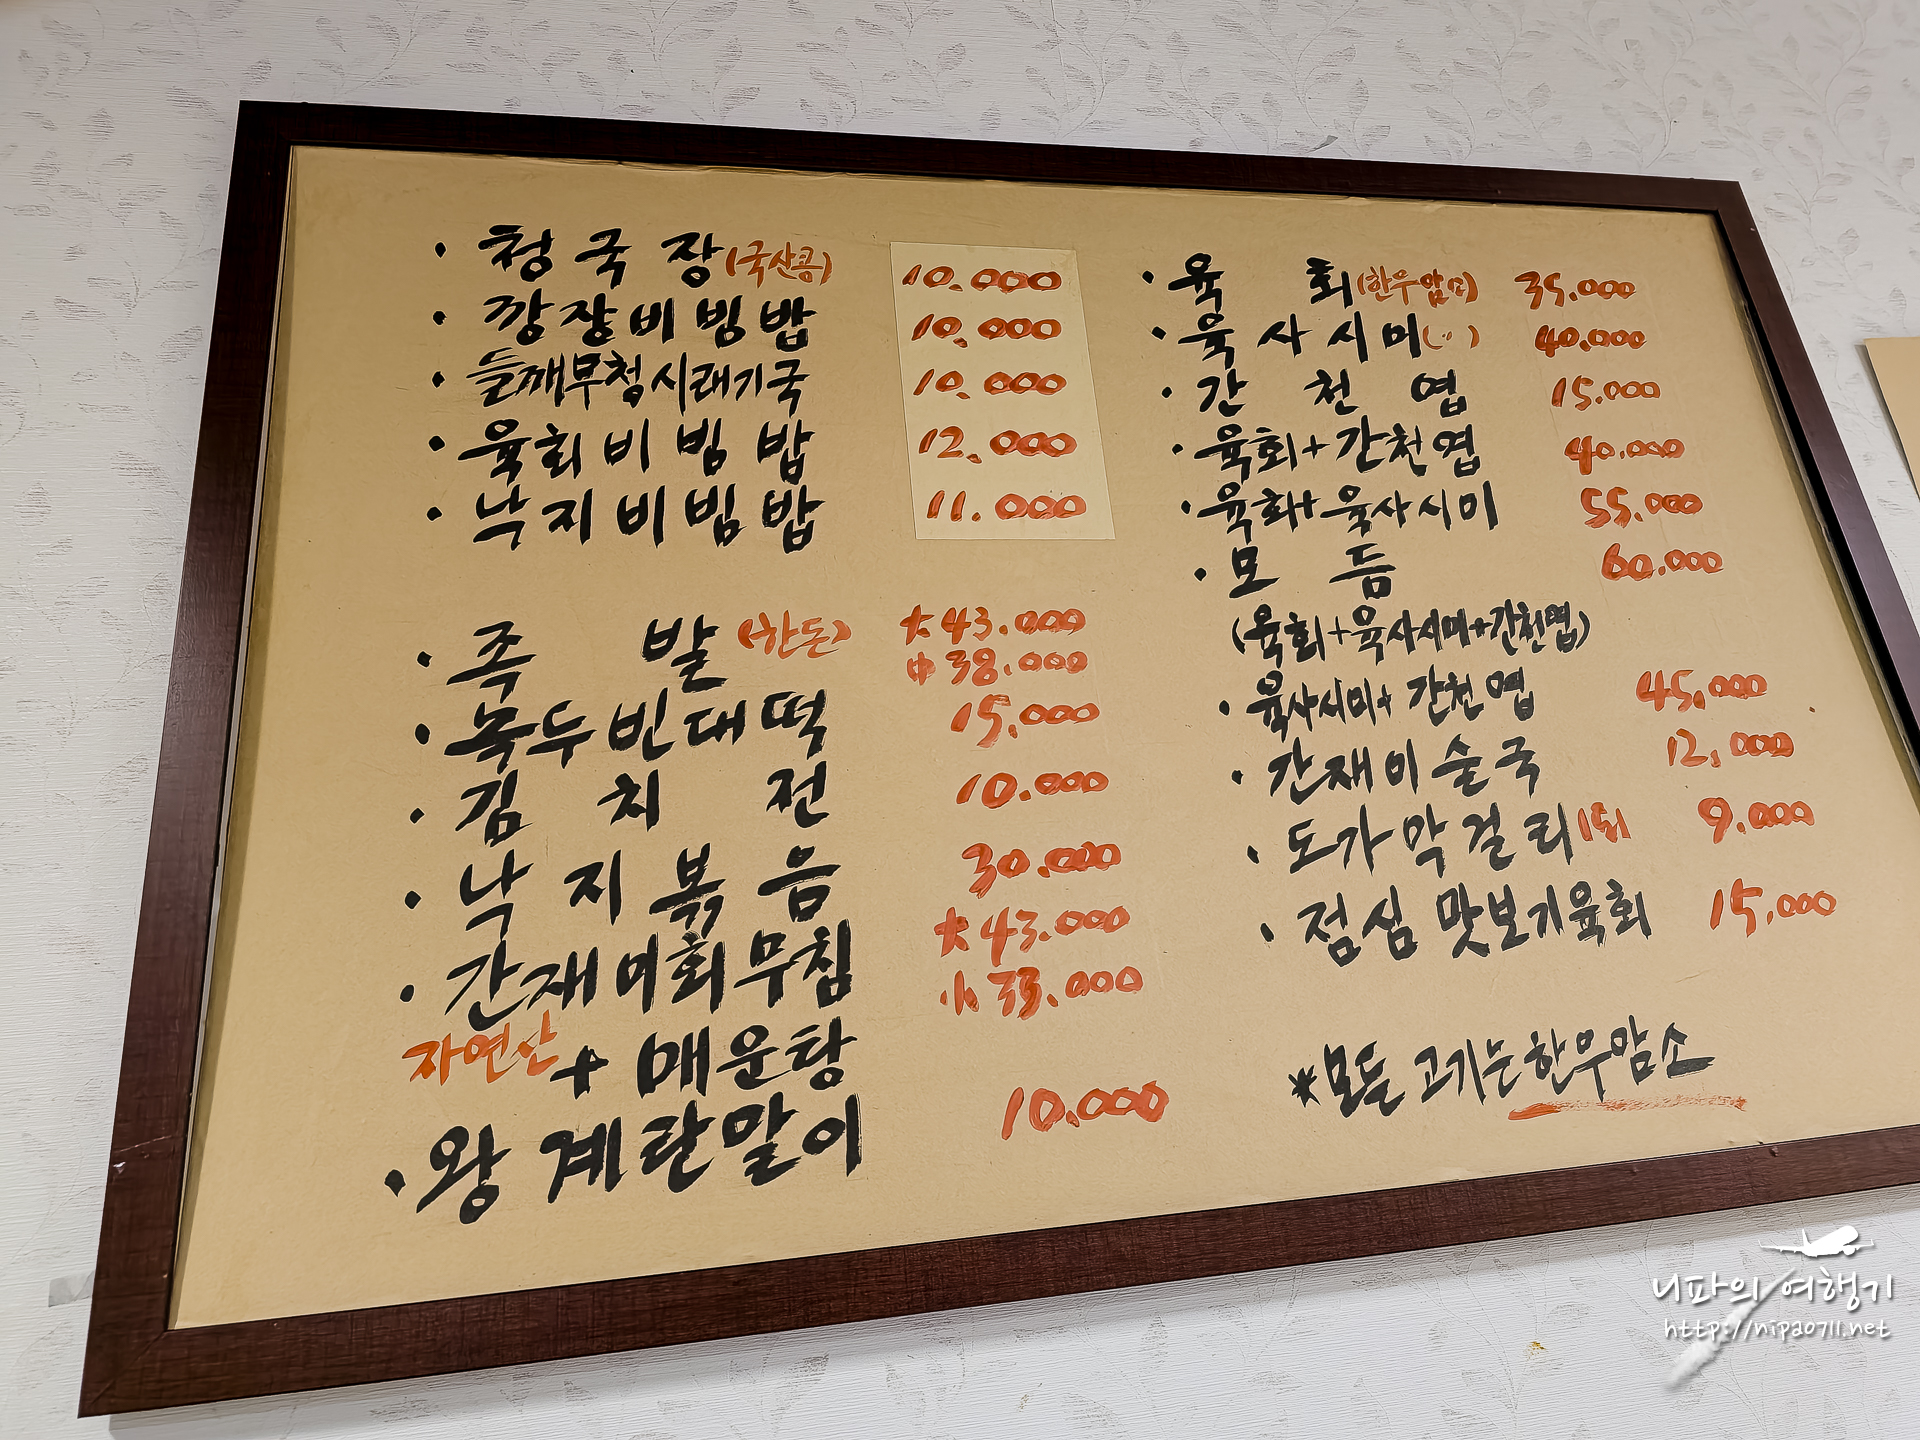 · 청국장 (국산콩) 10.000
· 깡장비빔밥 10.000
· 들깨무청시래기국 10.000
· 육회비빔밥 12.000
· 낙지비빔밥 11.000
· 족발 (한돈) 大 43.000
中 38.000
· 녹두빈대떡 15,000
· 김치전 10.000
· 낙지볶음 30.000
· 간재미회무침 大 43.000
자연산 + 매운탕 小 33.000
· 왕계란말이 10.000
· 육회 (한우암소) 35.000
· 육사시미 (〃) 40.000
· 간천엽 15.000
· 육회+간천엽 40.000
· 육회+육사시미 55.000
· 모듬 60.000
(육회+육사시미+간천엽)
· 육사시미+간천엽 45,000
· 간재미술국 12,000
· 도가막걸리 9.000
· 점심 맛보기육회 15,000
*모든 고기는 한우암소
니파의 여행기
http://nipa0711.net